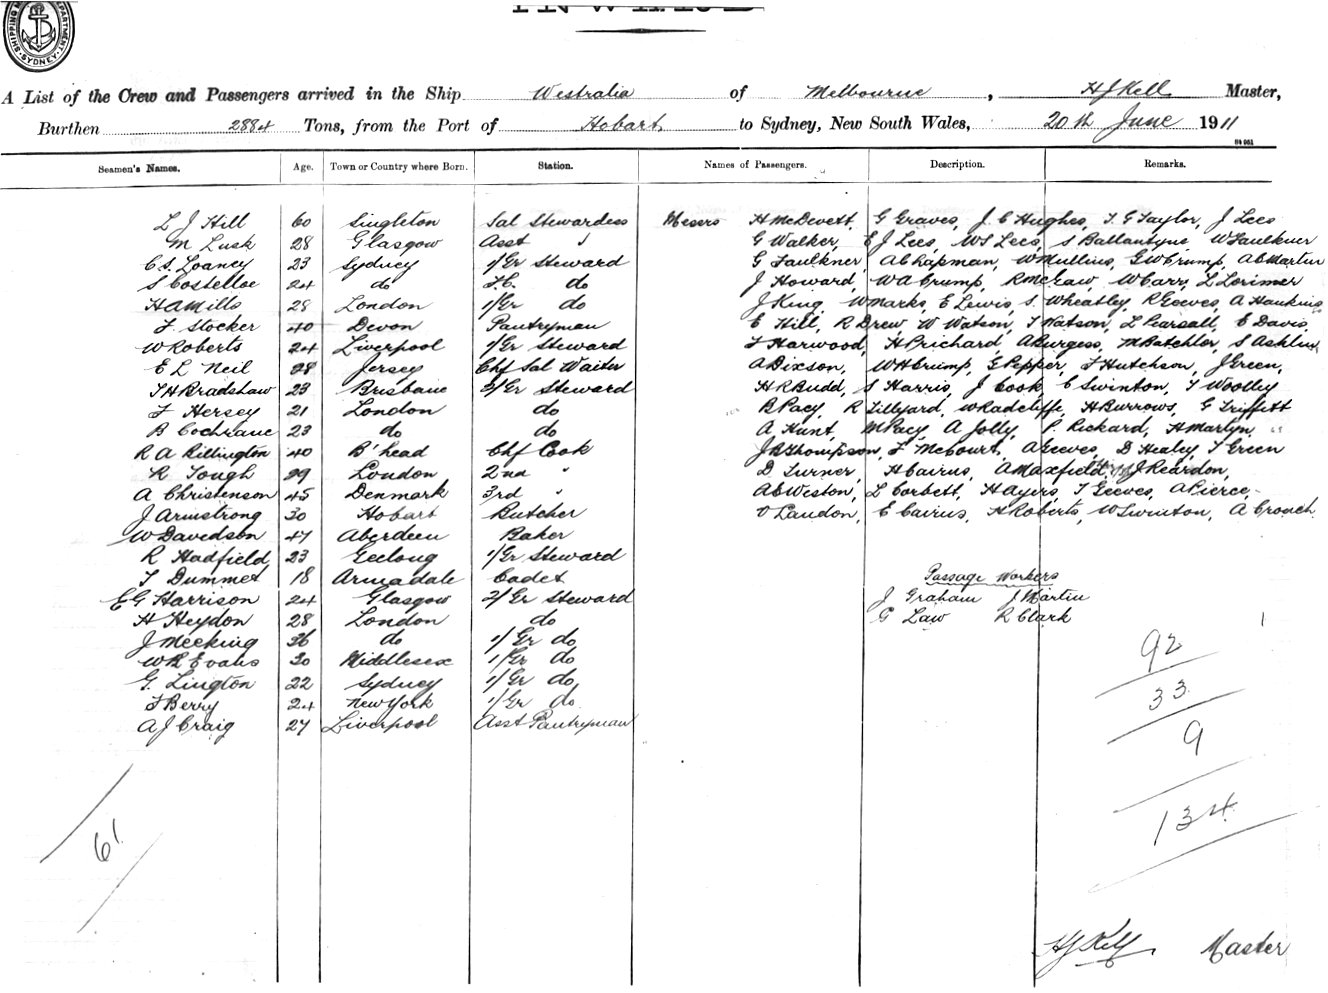 SHIPPING DEPARTMENT SYDNEY
INWARD
A List of the Crew and Passengers arrived in the Ship Westralia of Melbourne, H J Kell Master,
Burthen 2884 Tons, from the Port of Hobart to Sydney, New South Wales, 20th June 1911
Seamen's Names. Age. Town or Country where Born. Station. Names of Passengers. Description. Remarks.
L J Hill 60 Singleton Sal Stewardess Messrs H McDevett, G Graves, J. C Hughes, T. G Taylor, J Lees
M Lusk 28 Glasgow Asst " G Walker, E J Lees, W S Lees, S Ballantyne W Faulkner
C S. Loaney 23 Sydney 1/Gr Steward G Faulkner, A Chapman, W Mullins, G W Crump, A C Martin
S Costelloe 24 do F.C. do J Howard, W A Crump, R McGraw, W Carr, L Lorimer
H A Mills 28 London 1/Gr do J King, W Marks, E Lewis, S. Wheatley, R Geeves, A Hawkins
F Stocker 40 Devon Pantryman E Hill, R Drew, W Watson, T Watson, L Pearsall, E Davis,
W Roberts 24 Liverpool 1/Gr Steward F Harwood, H Prichard, A Burgess, M Batchlor, S Ashlin,
E L Neil 28 Jersey Chf Sal Waiter A Dixson, W H Crump, G Pepper, F Hutchson, J Green,
T H Bradshaw 23 Brisbane 2/Gr Steward H R Budd, S Harris, J Cook, C Swinton, T Woolley
F Hersey 21 London do B Pacy, R Lillyard, W Radcliffe, H Burrows, G Triffett
B Cochrane 23 do do A Hunt, M Pacy, A Jolly, P. Rickard, H Martyn,
R A Rillington 40 B'head Chf Cook J B Thompson, F McCourt, A Geeves, D Healey, T Green
R Tough 29 London 2nd " D Turner, H Cairns, A Maxfield, J Reardon,
A Christenson 45 Denmark 3rd " A C Weston, L Corbett, H Ayers, T Geeves, A Pierce,
J Armstrong 30 Hobart Butcher O Landon, E Cairns, H Roberts, W Swinton, A Crouch
W Davedson 47 Aberdeen Baker
R Hadfield 23 Geelong 1/Gr Steward
T Dummet 18 Armadale Cadet Passage Workers
E G Harrison 24 Glasgow 2/Gr Steward J Graham J Martin
H Heydon 28 London do G Law R Clark
J Meeking 36 do 1/Gr do
W R Evans 30 Middlesex 1/Gr do 92
G. Lington 22 Sydney 1/Gr do 33
F Berry 24 New York 1/Gr do
A J Craig 27 Liverpool Asst Pantryman 9
134
61
H J Kell Master